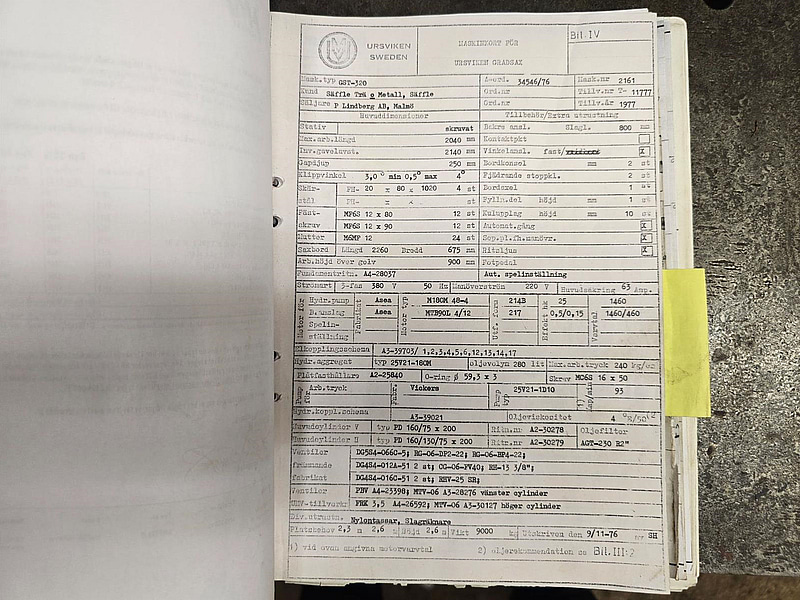 Bil. IV
URSVIKEN
SWEDEN
MASKINKORT FÖR
URSVIKEN GRADSAX
Mask.typ GST-320 A-ord. 34546/76 Mask.nr 2161
Kund Säffle Trä o Metall, Säffle Ord.nr Tillv.nr T- 11777
Säljare P Lindberg AB, Malmö Ord.nr Tillv.år 1977
Huvuddimensioner Tillbehör/Extra utrustning
Stativ skruvat Bakre ansl. Slagl. 800 mm
Max.arb.längd 2040 mm Kontaktpkt
Inv.gavelavst. 2140 mm Vinkelansl. fast/ X
Gapdjup 250 mm Bordkonsol mm 2 st
Klippvinkel 3,0° min 0,5° max 4° Fjädrande stoppkl. 2 st
Skär- PH- 20 x 80 x 1020 4 st Bordsxel 1 st
stål PH- x x st Fylln.del höjd mm 1 st
Fäst- MF6S 12 x 80 12 st Kulupplag höjd mm 10 st
skruv MF6S 12 x 90 12 st Automat.gång X
Mutter M6MF 12 24 st Sep.pl.fh.manövr. X
Saxbord Längd 2260 Bredd 675 mm Ritsljus X
Arb.höjd över golv 900 mm Fotpedal
Fundamentritn. A4-28037 Aut. spelinställning
Strömart 3-fas 380 V 50 Hz Manöverström 220 V Huvudsäkring 63 Amp.
Motor för Hydr.pump Fabrikat Asea Motor typ M180M 48-4 Utf. form 214B Effekt hk 25 Varvtal 1460
B.anslag Asea MTB90L 4/12 217 0,5/0,15 1460/460
Spelin-
ställning
Elkopplingsschema A3-39703/ 1,2,3,4,5,6,12,13,14,17
Hydr.aggregat typ 25V21-180M Oljevolym 280 lit Max.arb.tryck 240
Plåtfasthållare A2-25840 O-ring Ø 59,3 x 3 Skruv MC6S 16 x 50
Pump för Arb.tryck Vickers Pump typ 25V21-1D10 93
Hydr.koppl.schema A3-39021 Oljeviskositet 4 °E/50
Huvudcylinder V typ PD 160/75 x 200 Ritn.nr A2-30278 Oljefilter
Huvudcylinder H typ PD 160/130/75 x 200 Ritn.nr A2-30279 AGT-230 R2"
Ventiler DG5S4-0660-5; RG-06-DP2-22; RG-06-BP4-22;
främmande DG4S4-012A-51 2 st; CG-06-FV40; RH-13 3/8";
fabrikat DG4S4-016C-51 2 st; RHV-25 SR;
Ventiler PBV A4-23398; MTV-06 A3-28276 vänster cylinder
UMV-tillverkn FRK 3,5 A4-26592; MTV-06 A3-30127 höger cylinder
Div.utrustn. Nylontassar, Slagräknare
Platsbehov 2,3 m 2,6 m Höjd 2,6 m Vikt 9000 kg Utskriven den 9/11-76 av SH
1) vid ovan angivna motorvarvtal 2) oljerekommendation se Bil. III:2